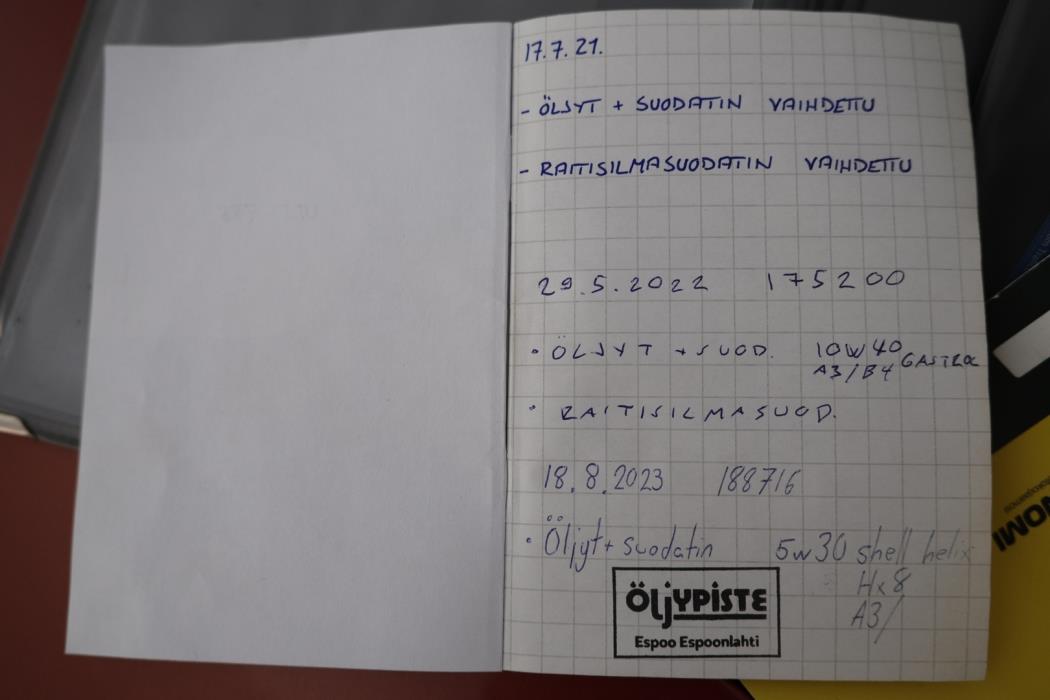 17.7.21.
- ÖLJYT + SUODATIN VAIHDETTU
- RAITISILMASUODATIN VAIHDETTU
29.5.2022 175200
• ÖLJYT + SUOD. 10W40 GASTROL
A3/B4
• RAITISILMASUOD.
18.8.2023 188716
• Öljyt + suodatin 5w30 shell helix
Hx8
A3/
ÖLJYPISTE
Espoo Espoonlahti
NOMI